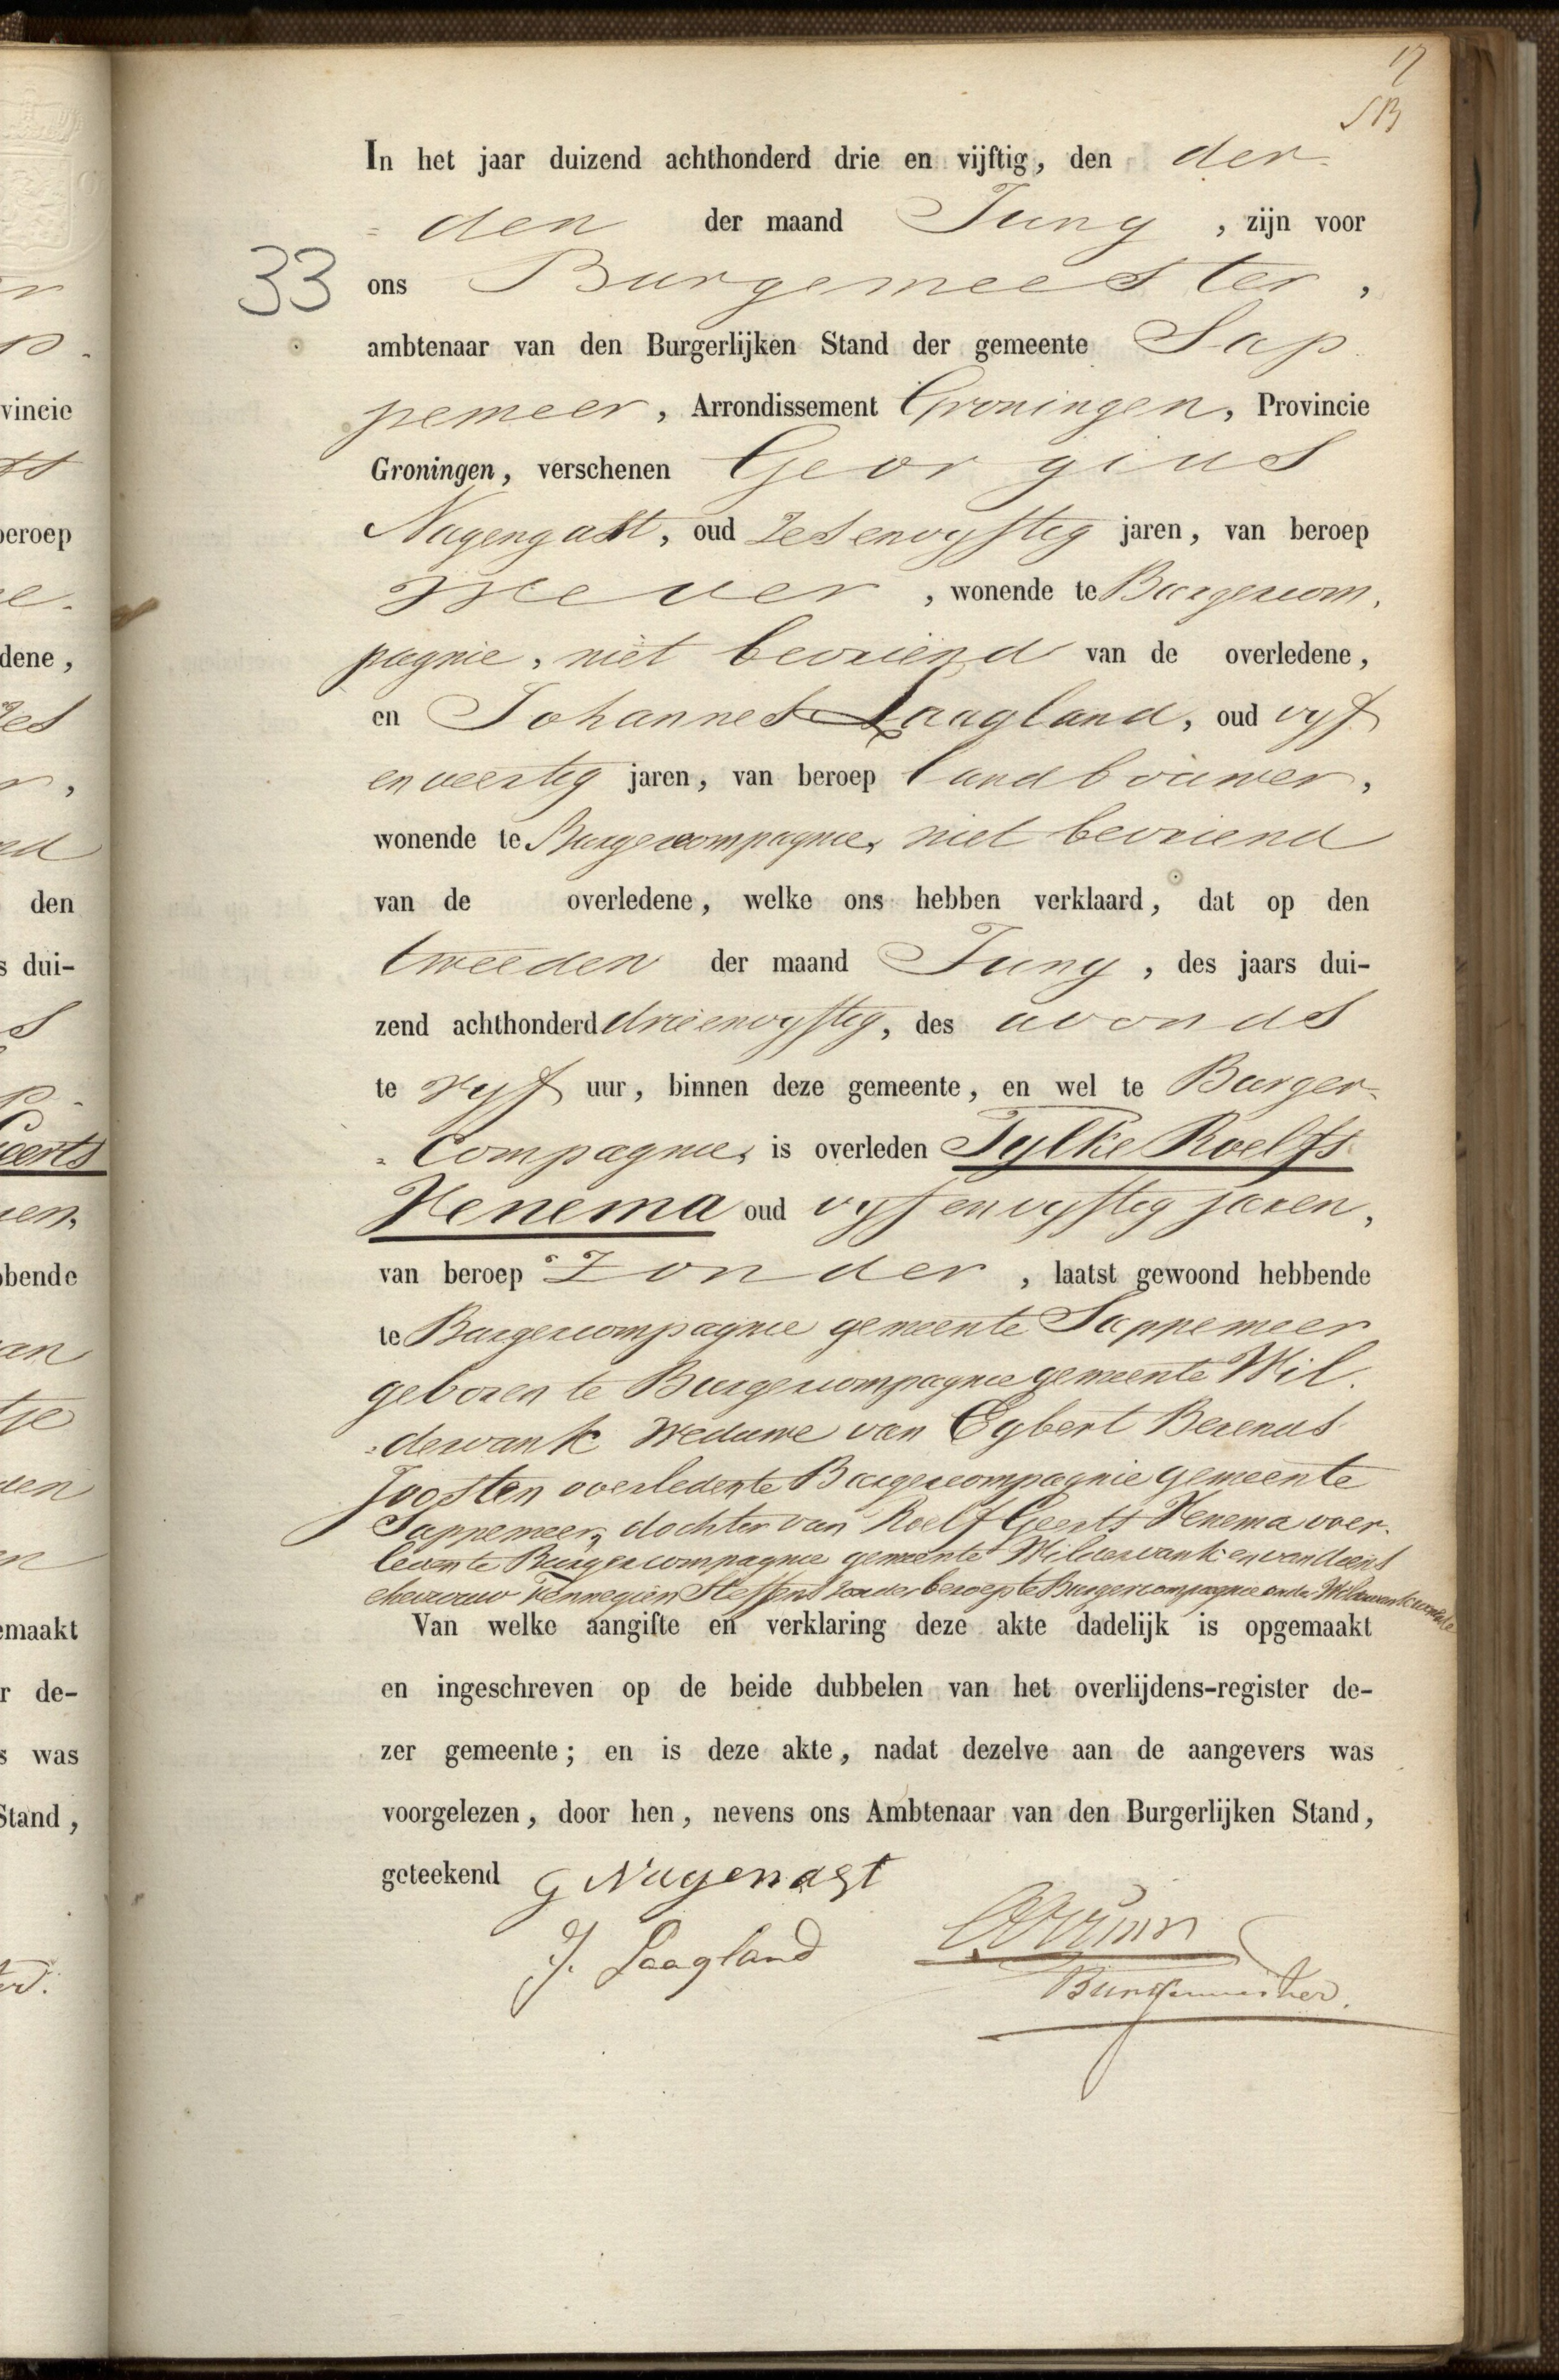 17
In het jaar duizend achthonderd drie en vijftig, den der-
= den der maand Juny, zijn voor
33
ons Burgemeester,
ambtenaar van den Burgerlijken Stand der gemeente Sap
pemeer, Arrondissement Groningen, Provincie
Groningen, verschenen Georgius
Nagengast, oud zesenvyftig jaren, van beroep
wever, wonende te Burgercom,
pagnie, niet bevriend van de overledene,
en Johannes Laagland, oud vyf
en veertig jaren, van beroep landbouwer,
wonende te Burgercompagnie, niet bevriend
van de overledene, welke ons hebben verklaard, dat op den
tweeden der maand Juny, des jaars dui-
zend achthonderd drieenvyftig, des avonds
te vyf uur, binnen deze gemeente, en wel te Burger-
= Compagnie, is overleden Tylke Roelfs
Venema oud vyf en vyftig jaren,
van beroep zonder, laatst gewoond hebbende
te Burgercompagnie gemeente Sappemeer
geboren te Burgercompagnie gemeente Wil
=dervank Weduwe van Egbert Berends
Joosten overleden te Burgercompagnie gemeente
Sappemeer, dochter van Roelf Geerts Venema over
leden te Burgercompagnie gemeente Wildervank en van diens
ehevrouw Steffens zonder beroep te Burgercompagnie onder Wildervank
Van welke aangifte en verklaring deze akte dadelijk is opgemaakt
en ingeschreven op de beide dubbelen van het overlijdens-register de-
zer gemeente; en is deze akte, nadat dezelve aan de aangevers was
voorgelezen, door hen, nevens ons Ambtenaar van den Burgerlijken Stand,
geteekend G Nagengast
J. Laagland
Burgemeester.